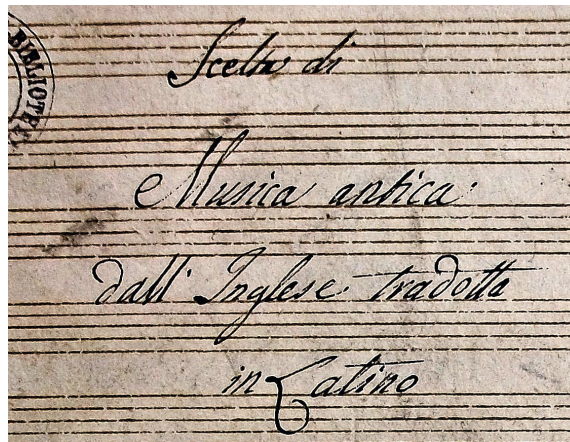 BIBLIOTE
Scelta di
Musica antica
dall' Inglese tradotta
in Latino